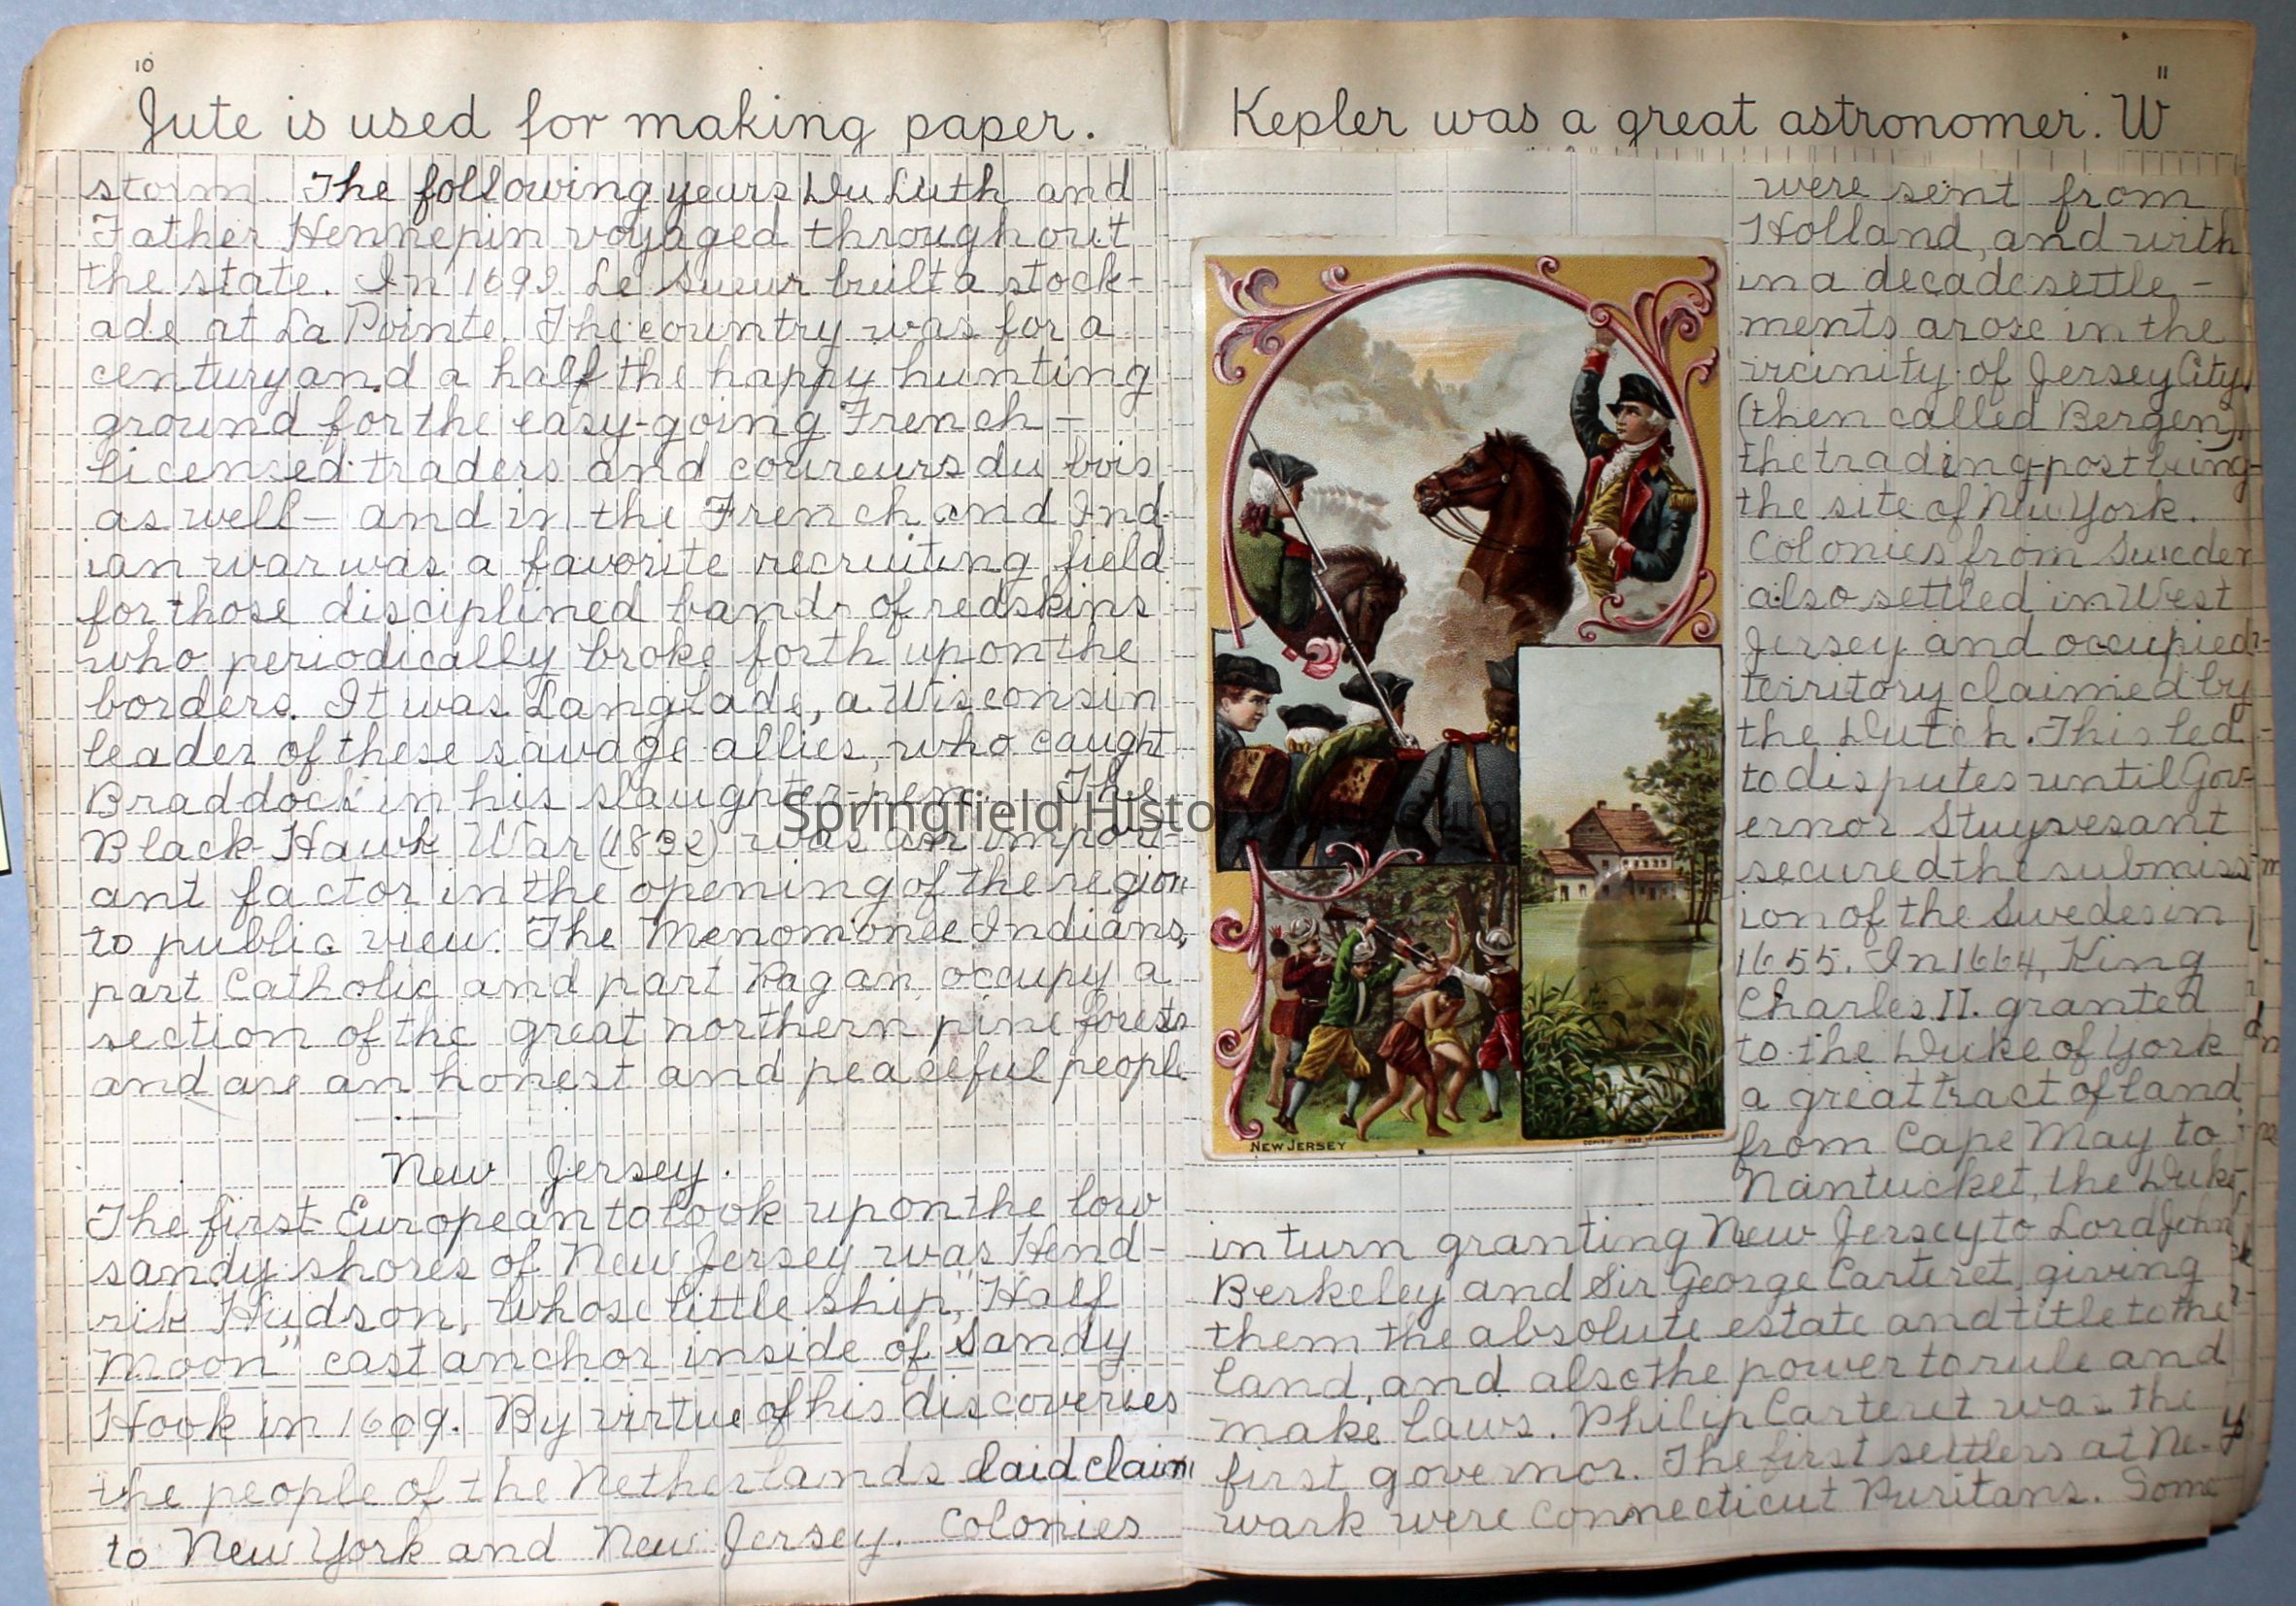 10
Jute is used for making paper.
storm The following years Du Luth and
Father Hennepin voyaged throughout
the state. In 1692 Le Sueur built a stock-
ade at La Pointe. The country was for a
century and a half the happy hunting
ground for the easy-going French –
licensed traders and coureurs du bois
as well – and in the French and Ind-
ian war was a favorite recruiting field
for those disciplined bands of redskins
who periodically broke forth upon the
borders. It was Langlade, a Wisconsin
leader of these savage allies, who caught
Braddock in his slaughter-pen. The
Black Hawk War (1832) was an import-
ant factor in the opening of the region
to public view. The Menomonee Indians,
part Catholic and part Pagan, occupy a
section of the great northern pine forests
and are an honest and peaceful people
New Jersey.
The first European to look upon the low
sandy shores of New Jersey was Hend-
rik Hudson, whose little ship, "Half
Moon" cast anchor inside of Sandy
Hook in 1609. By virtue of his discoveries
the people of the Netherlands laid claim
to New York and New Jersey. Colonies
11
Kepler was a great astronomer. W
were sent from
Holland, and with
in a decade settle-
ments arose in the
vicinity of Jersey City
(then called Bergen),
the trading-post being
the site of New York.
Colonies from Sweden
also settled in West
Jersey and occupied
territory claimed by
the Dutch. This led
to disputes until Gov-
ernor Stuyvesant
secured the submiss-
ion of the Swedes in
1655. In 1664, King
Charles II. granted
to the Duke of York
a great tract of land
from Cape May to
Nantucket, the Duke
in turn granting New Jersey to Lord John
Berkeley and Sir George Carteret, giving
them the absolute estate and title to the
land, and also the power to rule and
make laws. Philip Carteret was the
first governor. The first settlers at Ne-
wark were Connecticut Puritans. Some
NEW JERSEY
Springfield History Museum